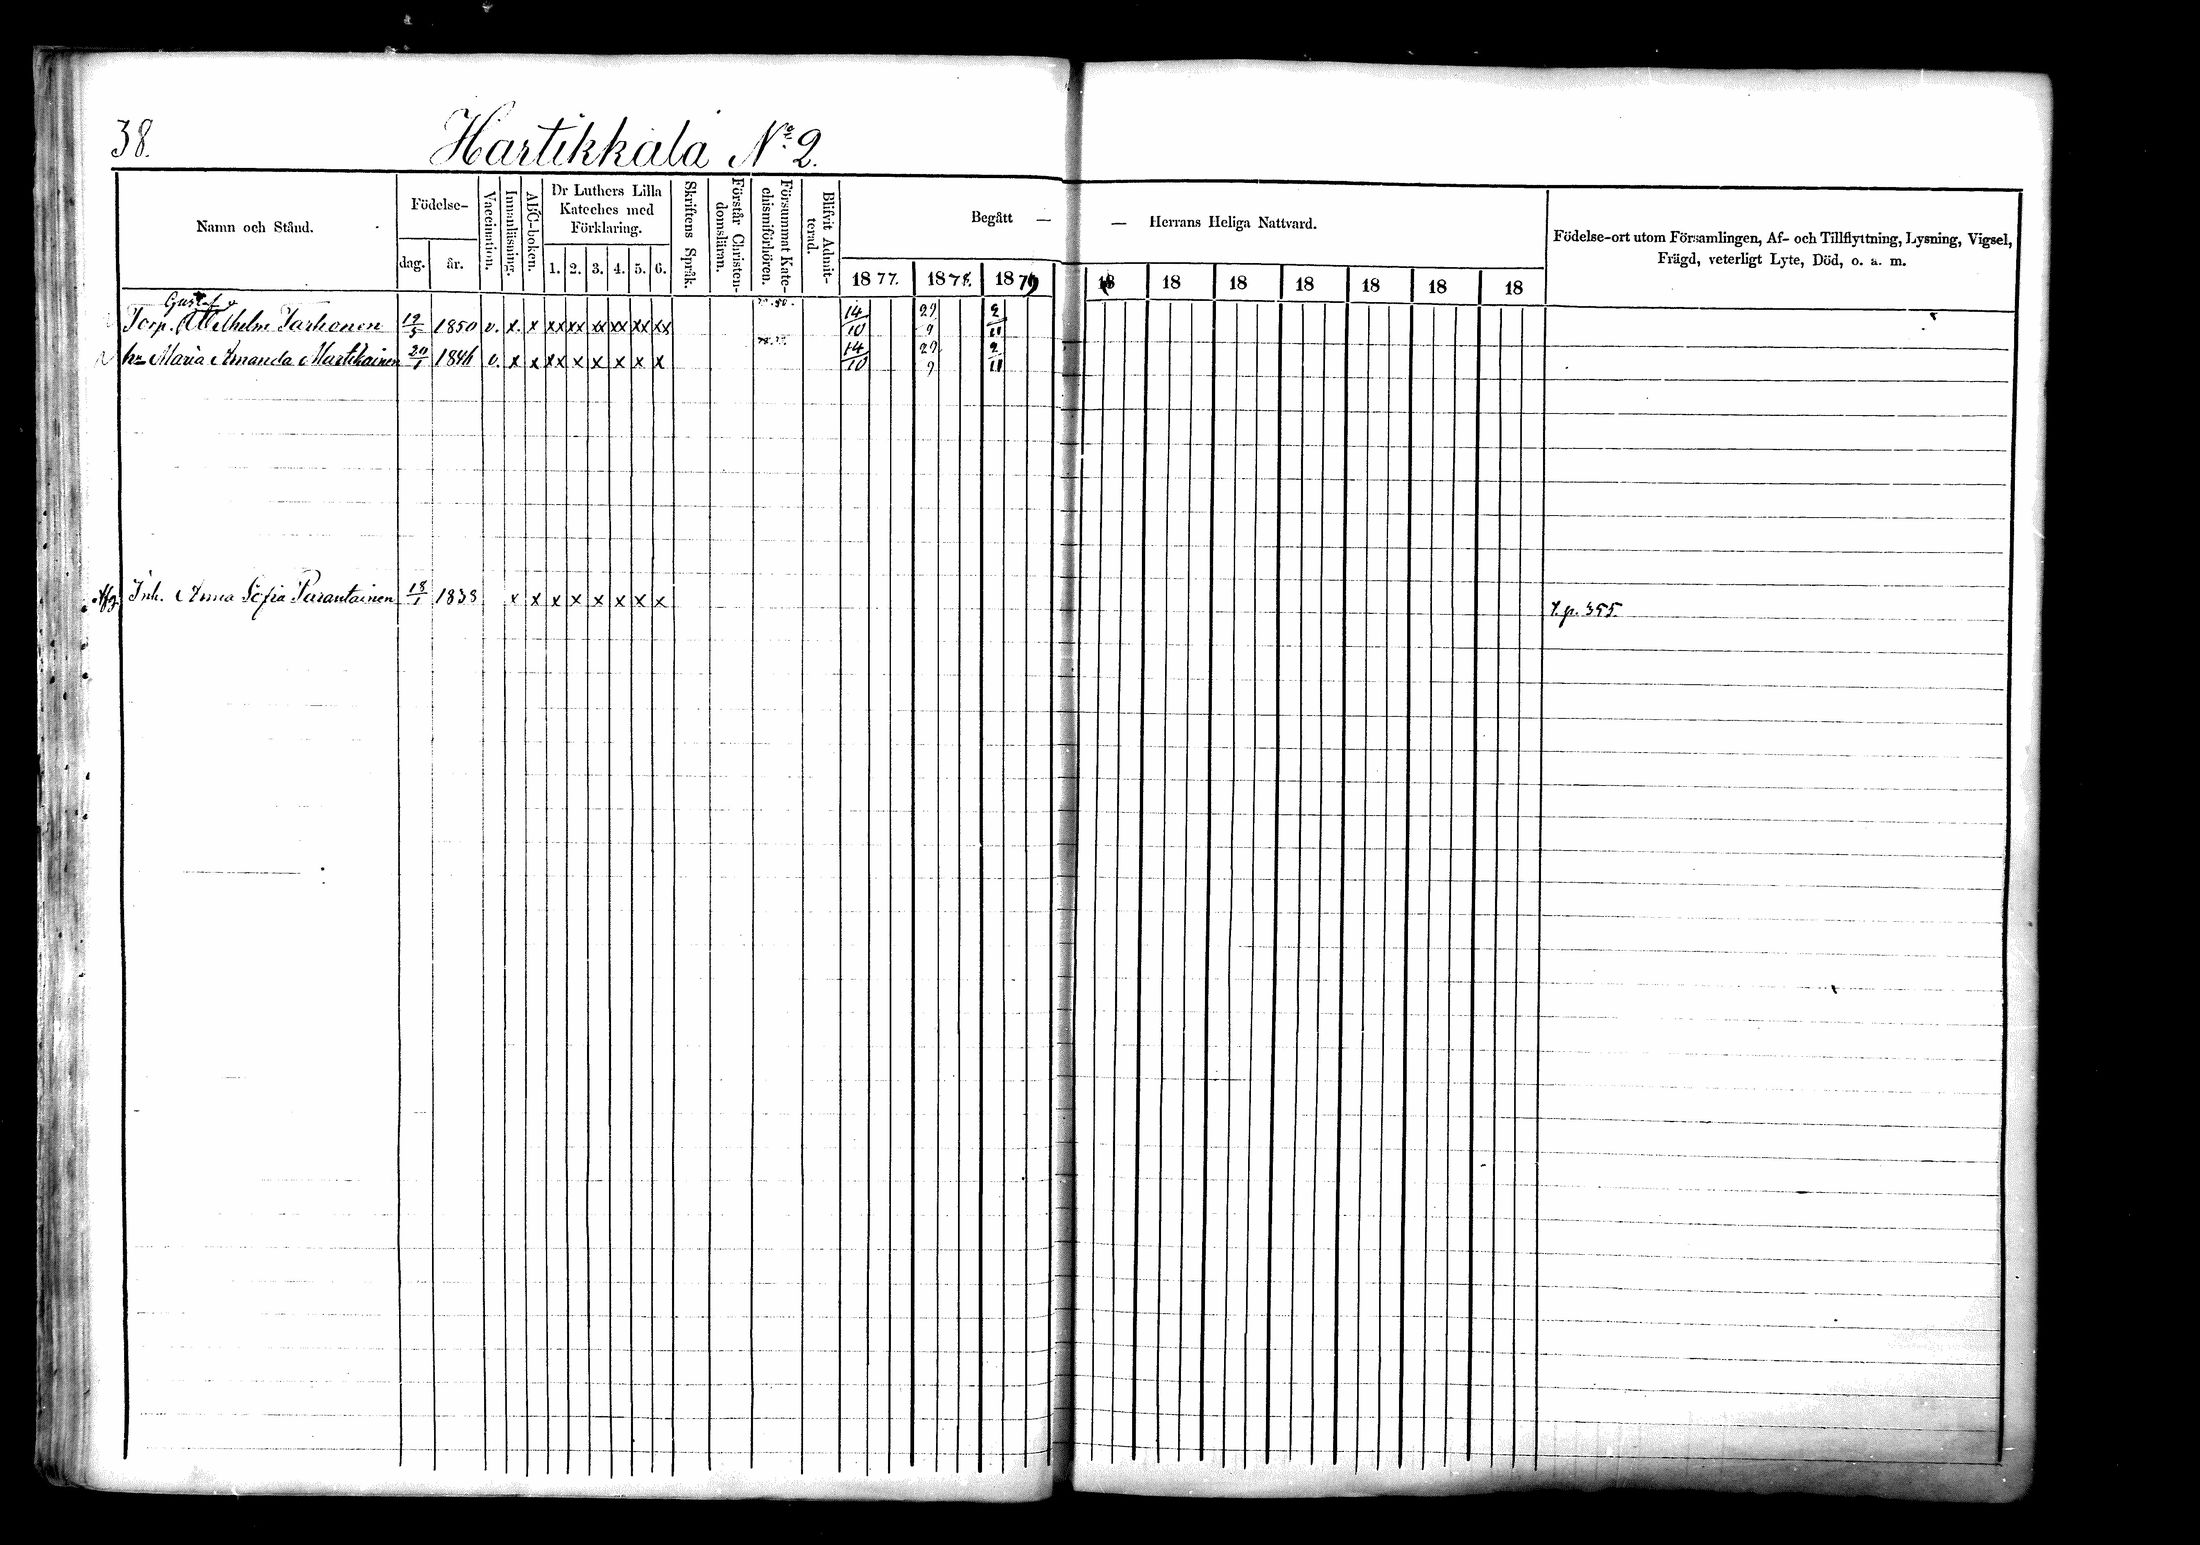 38.
Hartikkala No 2.
Namn och Stånd.
Födelse-
dag. år.
Vaccination.
Innanläsning.
ABC-boken.
Dr Luthers Lilla
Kateches med
Förklaring.
1. 2. 3. 4. 5. 6.
Skriftens Språk.
Förstår Christen-
domsläran.
Försummat Kate-
chismiförhören.
Blifvit Admit-
terad.
Begått — — Herrans Heliga Nattvard.
1877. 1878. 1879 18 18 18 18 18 18 18
Födelse-ort utom Församlingen, Af- och Tillflyttning, Lysning, Vigsel,
Frägd, veterligt Lyte, Död, o. a. m.
Gustaf
Torp. Wilhelm Tarhonen 12/5 1850 v. x. x xx xx xx xx xx xx 14/10 29/9 2/11
hu Maria Amanda Martikainen 20/1 1846 v. x x xx x x x x x 14/10 29/9 2/11
Afg. Inh. Anna Sofia Parantainen 18/1 1838 x x x x x x x x p. 355.